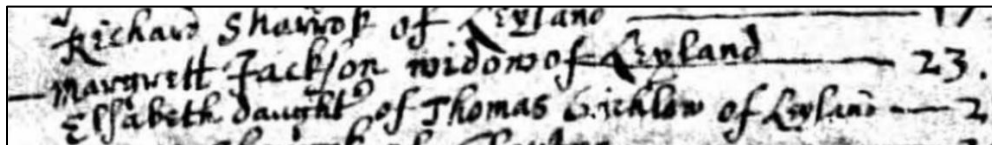 Richard Sharrok of Leyland 17
Margrett Jackson widow of Leyland 23.
Elsabeth daught of Thomas of Leyland 2